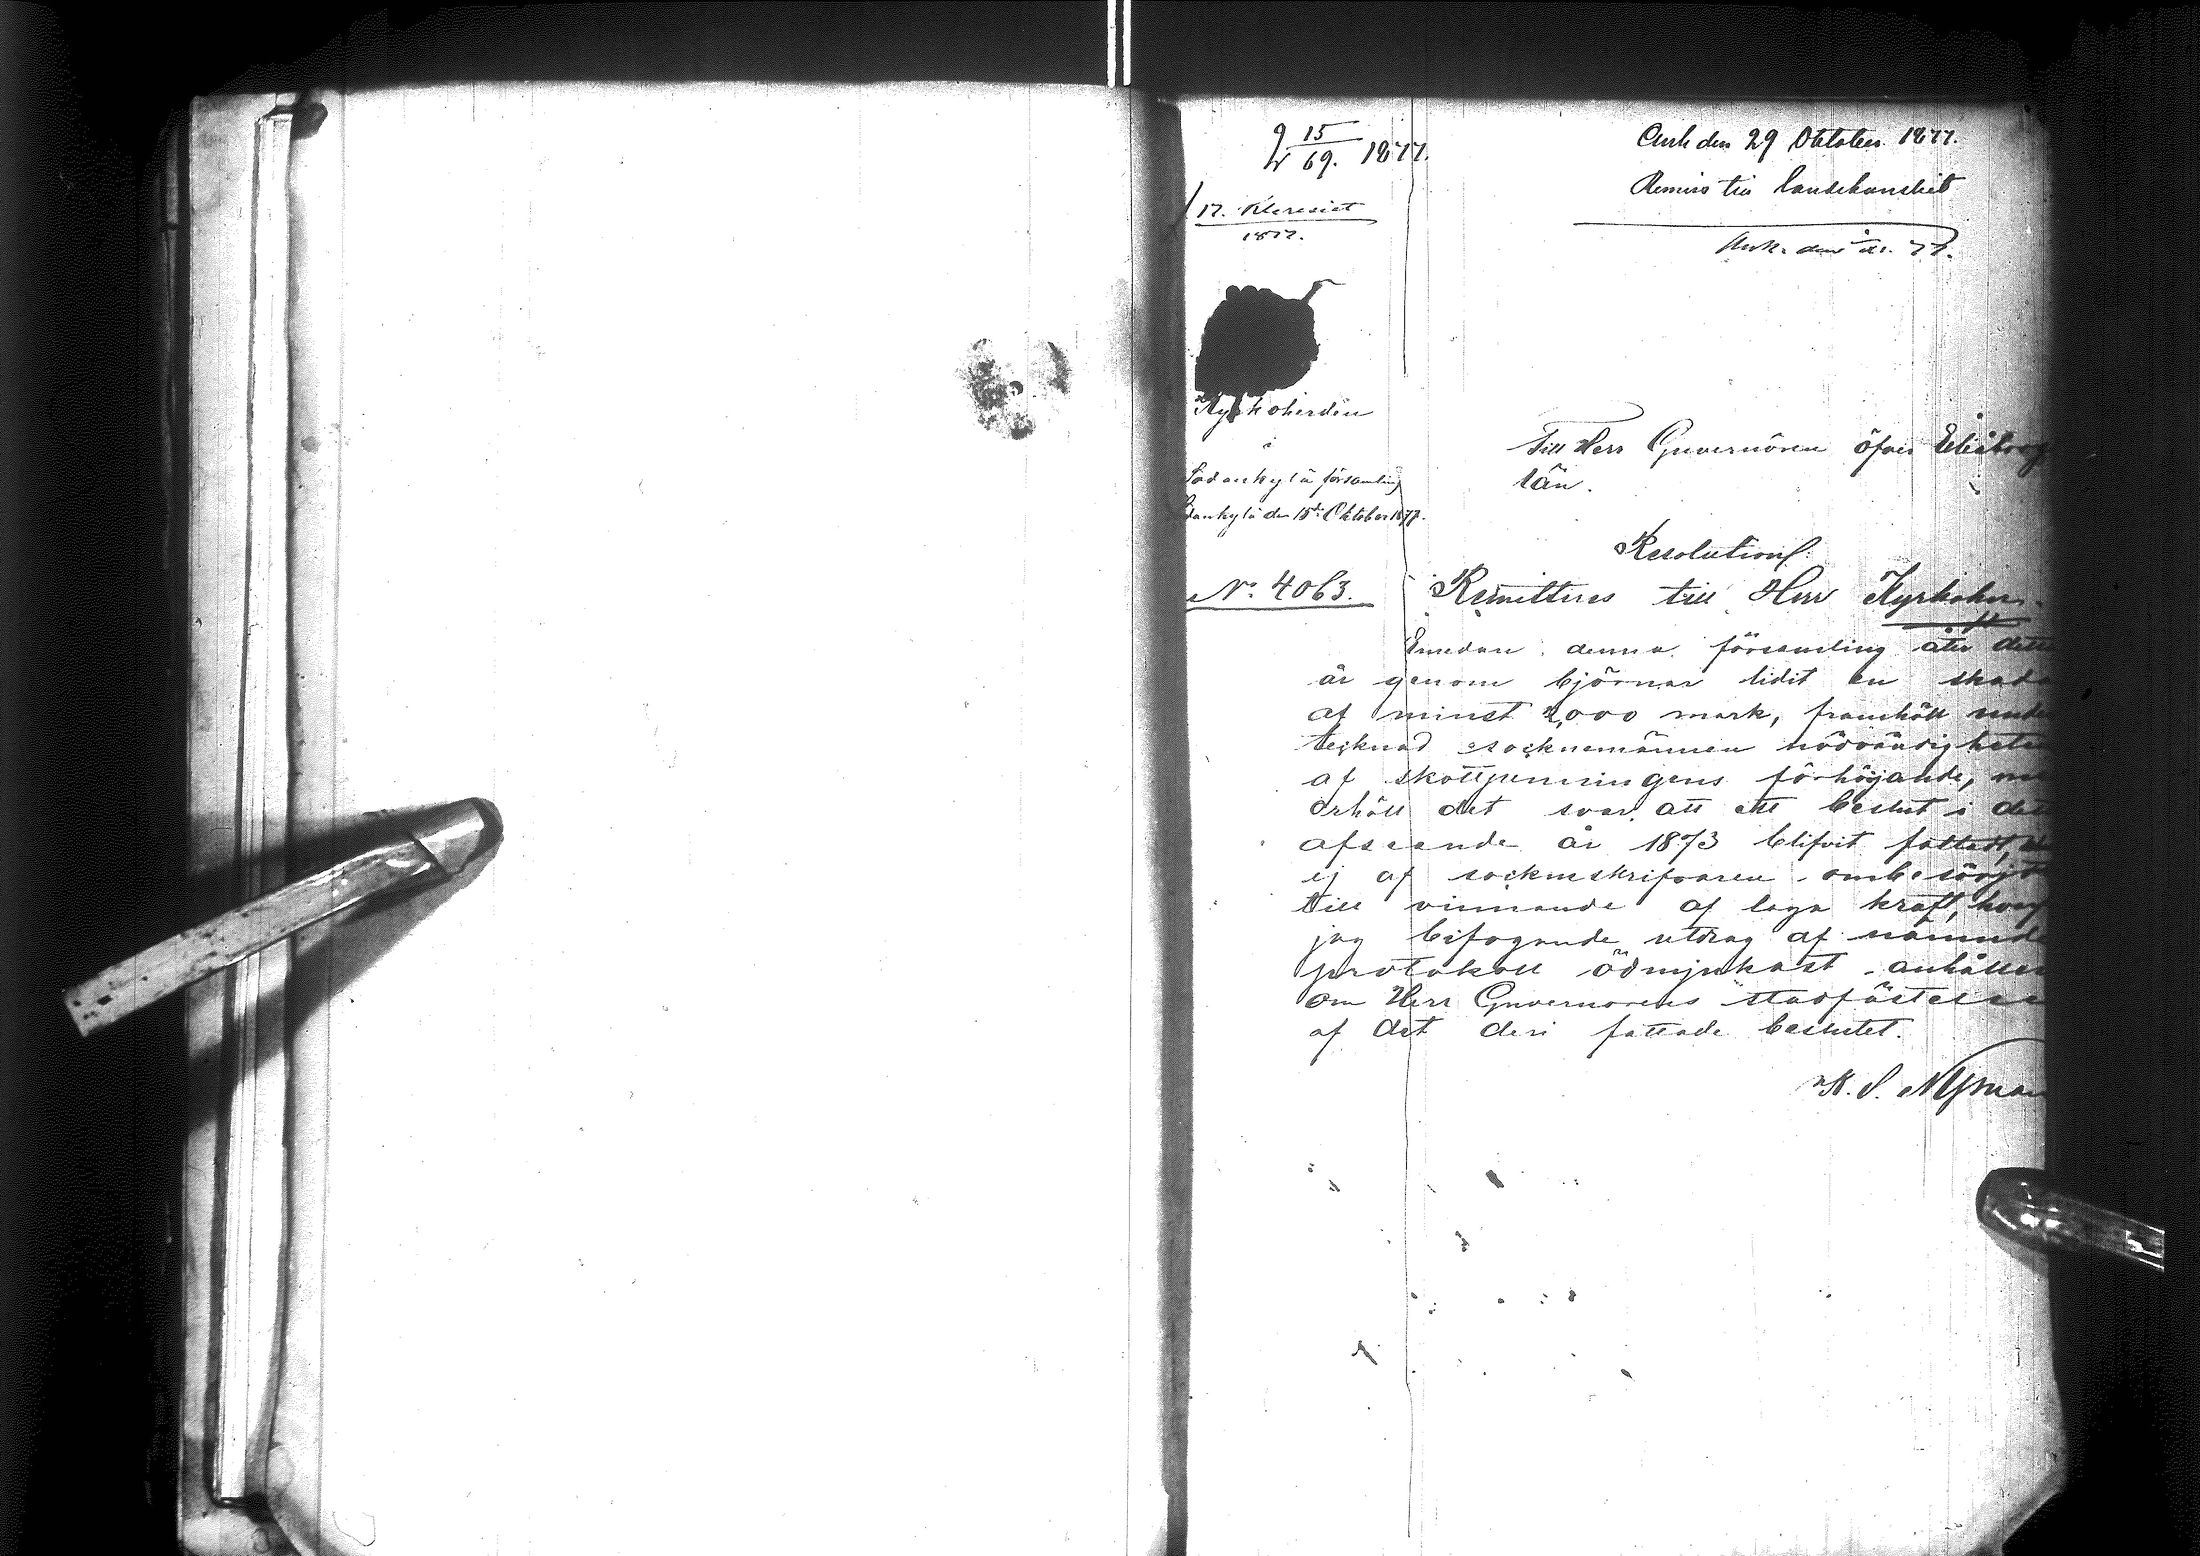 15
69. 1877.
17. Kleresiet
1877.
Ank den 29 Oktober 1877.
Remiss till landskansliet
Ank. den
Kyrkoherden
i
Sodankylä församling
Sodankylä den 15de Oktober 1877.
Till Herr Guvernören öfver Uleåborgs
län.
Resolution:
No. 4063.
Remitteras till Herr Kyrkoher-
Emedan denna församling åter detta
år genom björnar lidit en skada
af minst 2,000 mark, framhöll under
tecknad socknemännen nödvändigheten
af skottpenningens förhöjande, men
erhöll det svar, att ett beslut i det
afseende år 1873 blifvit fattadt,
ej af sockneskrifvaren ombesörjdt
till vinnande af laga kraft, hvarför
jag bifogande utdrag af nämnde
protokoll ödmjukast anhåller
om Herr Guvernörens stadfästelse
af det deri fattade beslutet.
K. S. Nyman